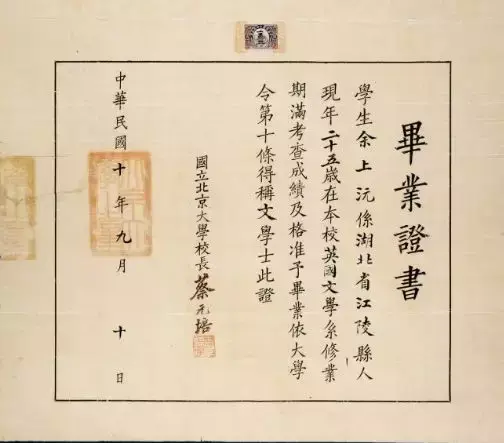 畢業證書
學生余上沅係湖北省江陵縣人
現年二十五歲在本校英國文學系修業
期滿考查成績及格准予畢業依大學
令第十條得稱文學士此證
國立北京大學校長蔡元培
中華民國十年九月十日